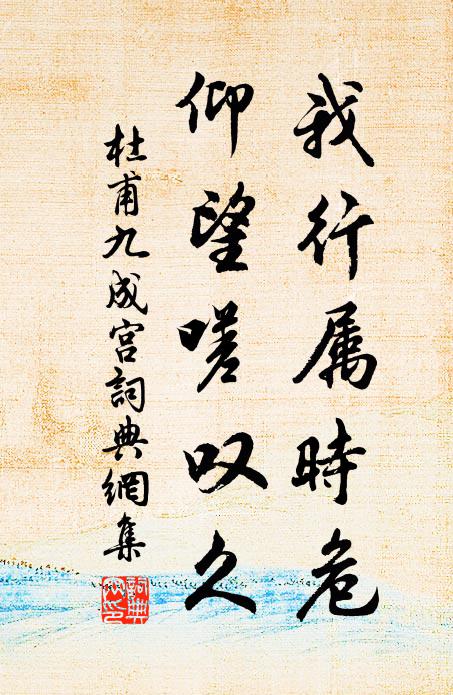 我行属時危
仰望嗟叹久
杜甫九成宫詞典網集